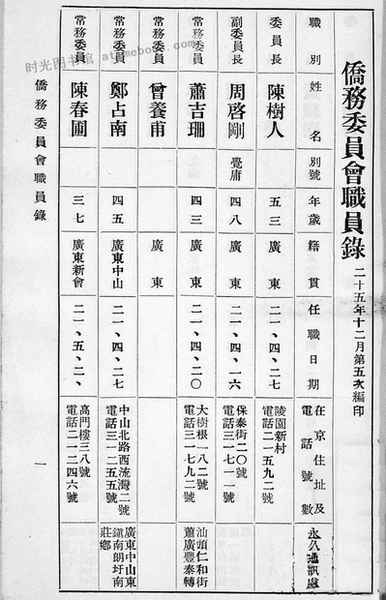 僑務委員會職員錄
二十五年十二月第五次編印
職別 姓名 別號 年歲 籍貫 任職日期 在京住址及電話號數 永久通訊處
委員長 陳樹人 五三 廣東 二一、四、二七 陵園新村 電話二一五九二號
副委員長 周啓剛 覺庸 四八 廣東 二一、四、一六 保泰街二〇號 電話三一七一一號
常務委員 蕭吉珊 四三 廣東 二一、四、二〇 大樹根一八二號 電話三一七九二號 汕頭仁和街蕭廣豐泰轉
常務委員 曾養甫 廣東
常務委員 鄭占南 四五 廣東中山 二一、四、二七 中山北路西流灣二號 電話三一二五五號 廣東中山東鎮南朗圩南莊鄉
常務委員 陳春圃 三七 廣東新會 二一、五、二、 高門樓三八號 電話二二二四六號
僑務委員會職員錄
一
时光图书馆